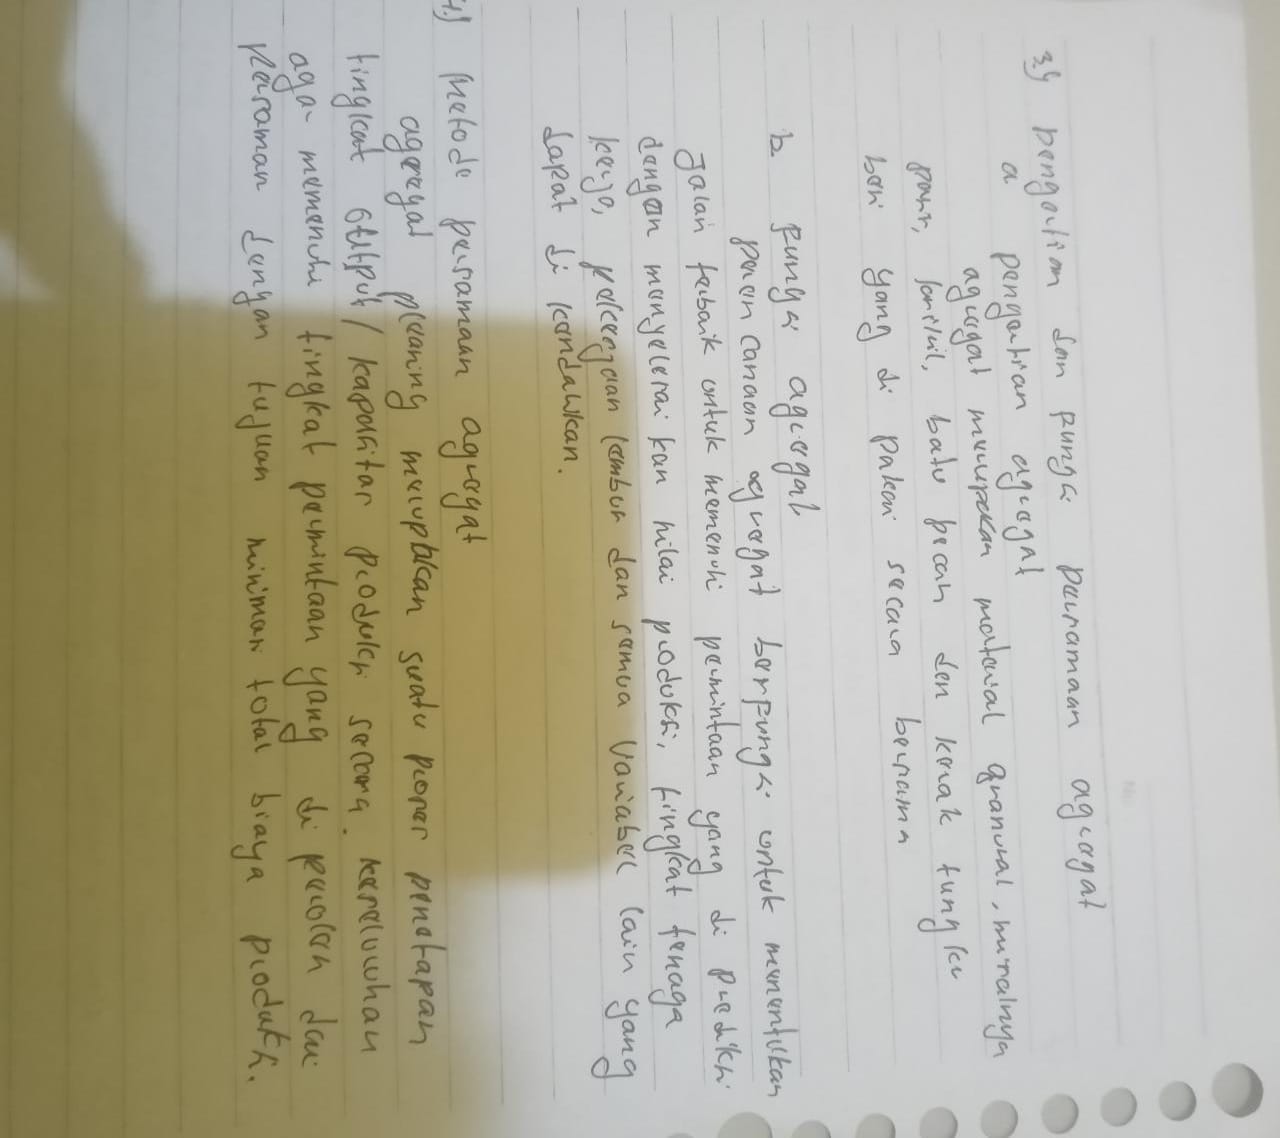 3.) pengertian dan fungsi peramaan agregat
a pengertian agregat
agregat merupakan material granural, misalnya
pasir, kerikil, batu pecah dan kerak tungku
besi yang di pakai secara bersama
b. fungsi agregat
perencanaan agregat berfungsi untuk menentukan
Jalan terbaik untuk memenuhi permintaan yang di prediksi
dengan menyelesai kan nilai produksi, tingkat tenaga
kerja, pekerjaan lembur dan semua variabel lain yang
dapat di kendalikan.
4.) Metode peramaan agregat
agregat planing merupakan suatu proses penetapan
tingkat output / kapasitas produksi secara keseluruhan
aga- memenuhi tingkat permintaan yang di peroleh dari
dengan tujuan minimasi total biaya produksi.